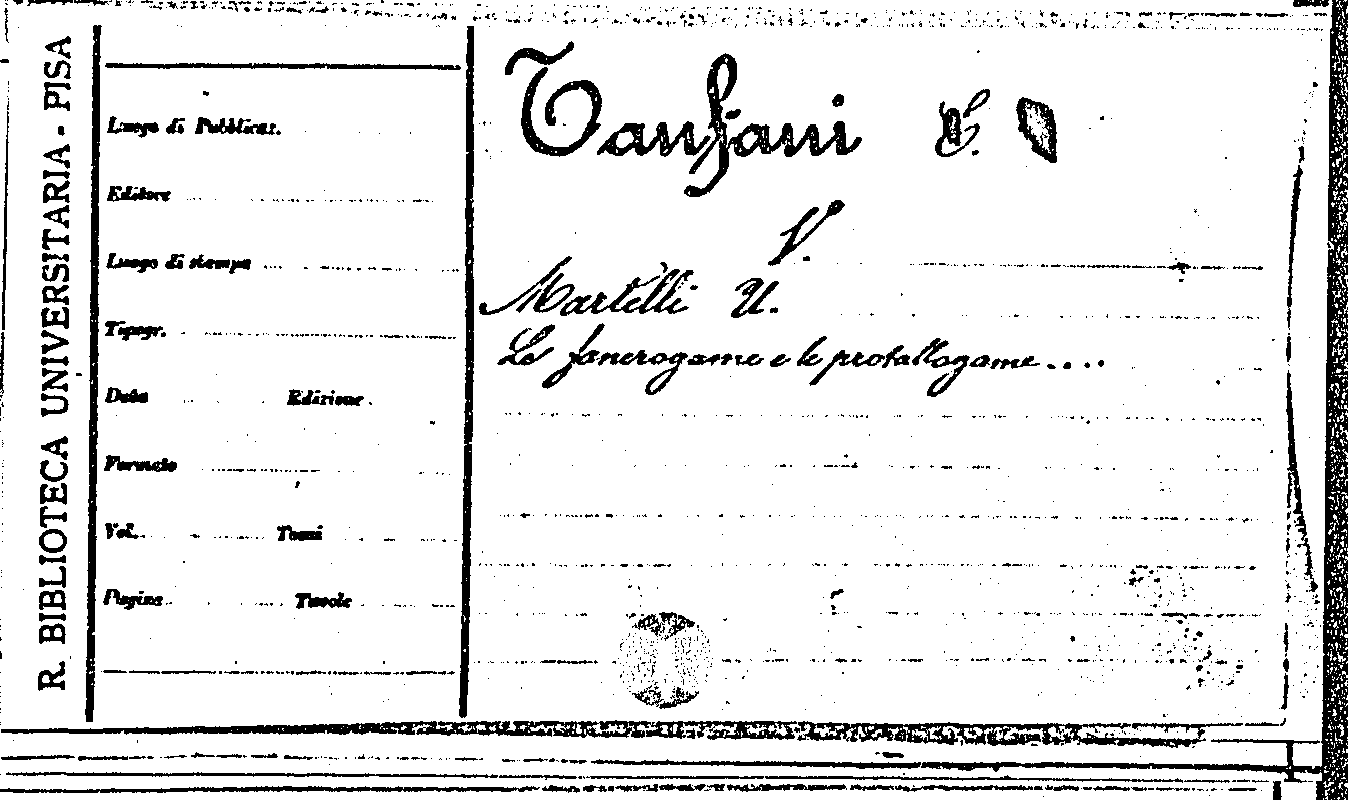 R. BIBLIOTECA UNIVERSITARIA - PISA
Luogo di Pubblicaz.
Editore
Luogo di stampa
Tipogr.
Data Edizione
Formato
Vol. Tomi
Pagine Tavole
Tanfani E.
V.
Martelli U.
Le fanerogame e le protallogame....